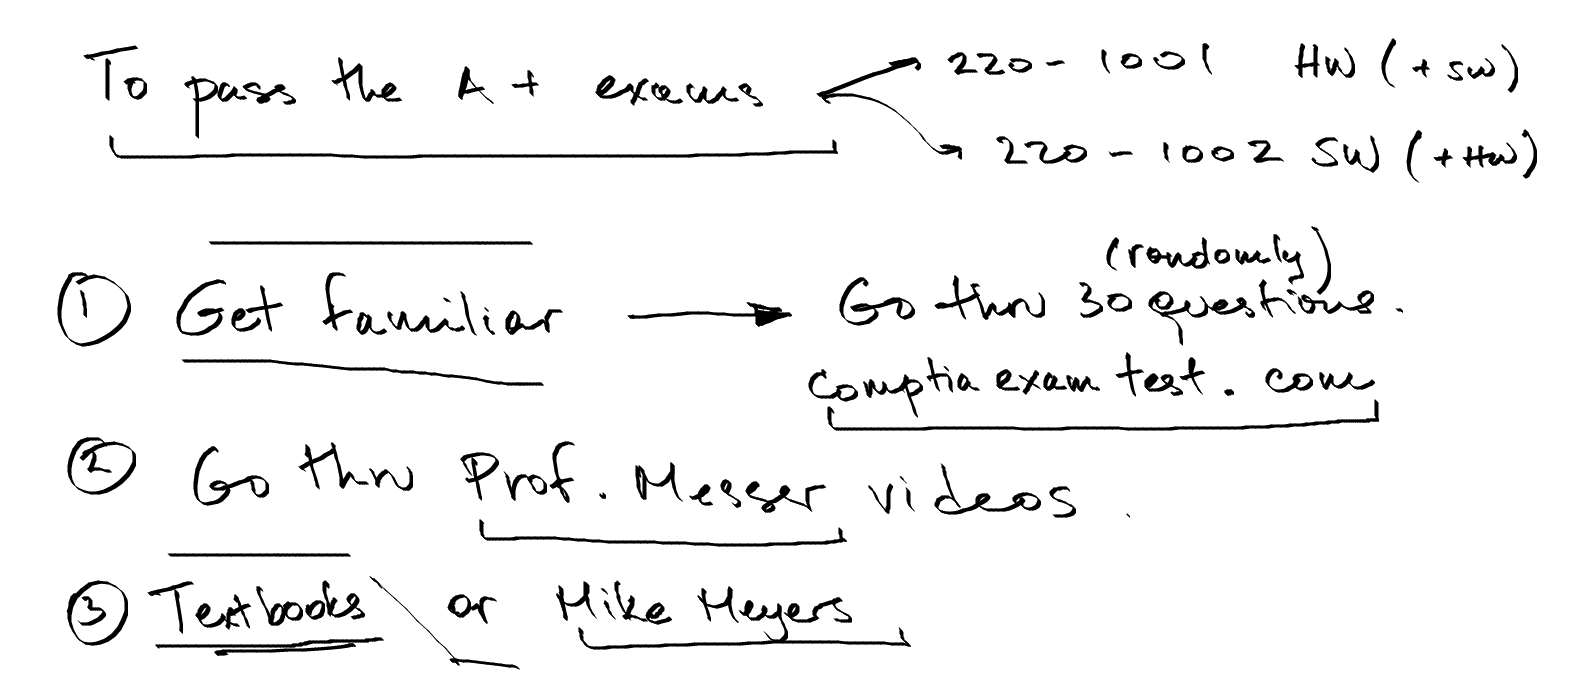 To pass the A+ exams
220-1001 HW (+SW)
220-1002 SW (+HW)
(randomly)
① Get familiar → Go thru 30 questions.
comptiaexamtest.com
② Go thru Prof. Messer videos.
③ Textbooks or Mike Meyers